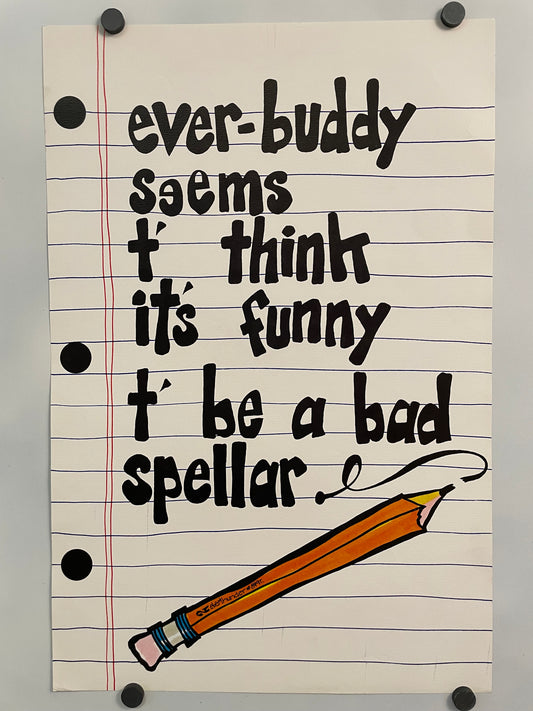 ever-buddy
seems
t' think
it's funny
t' be a bad
spellar